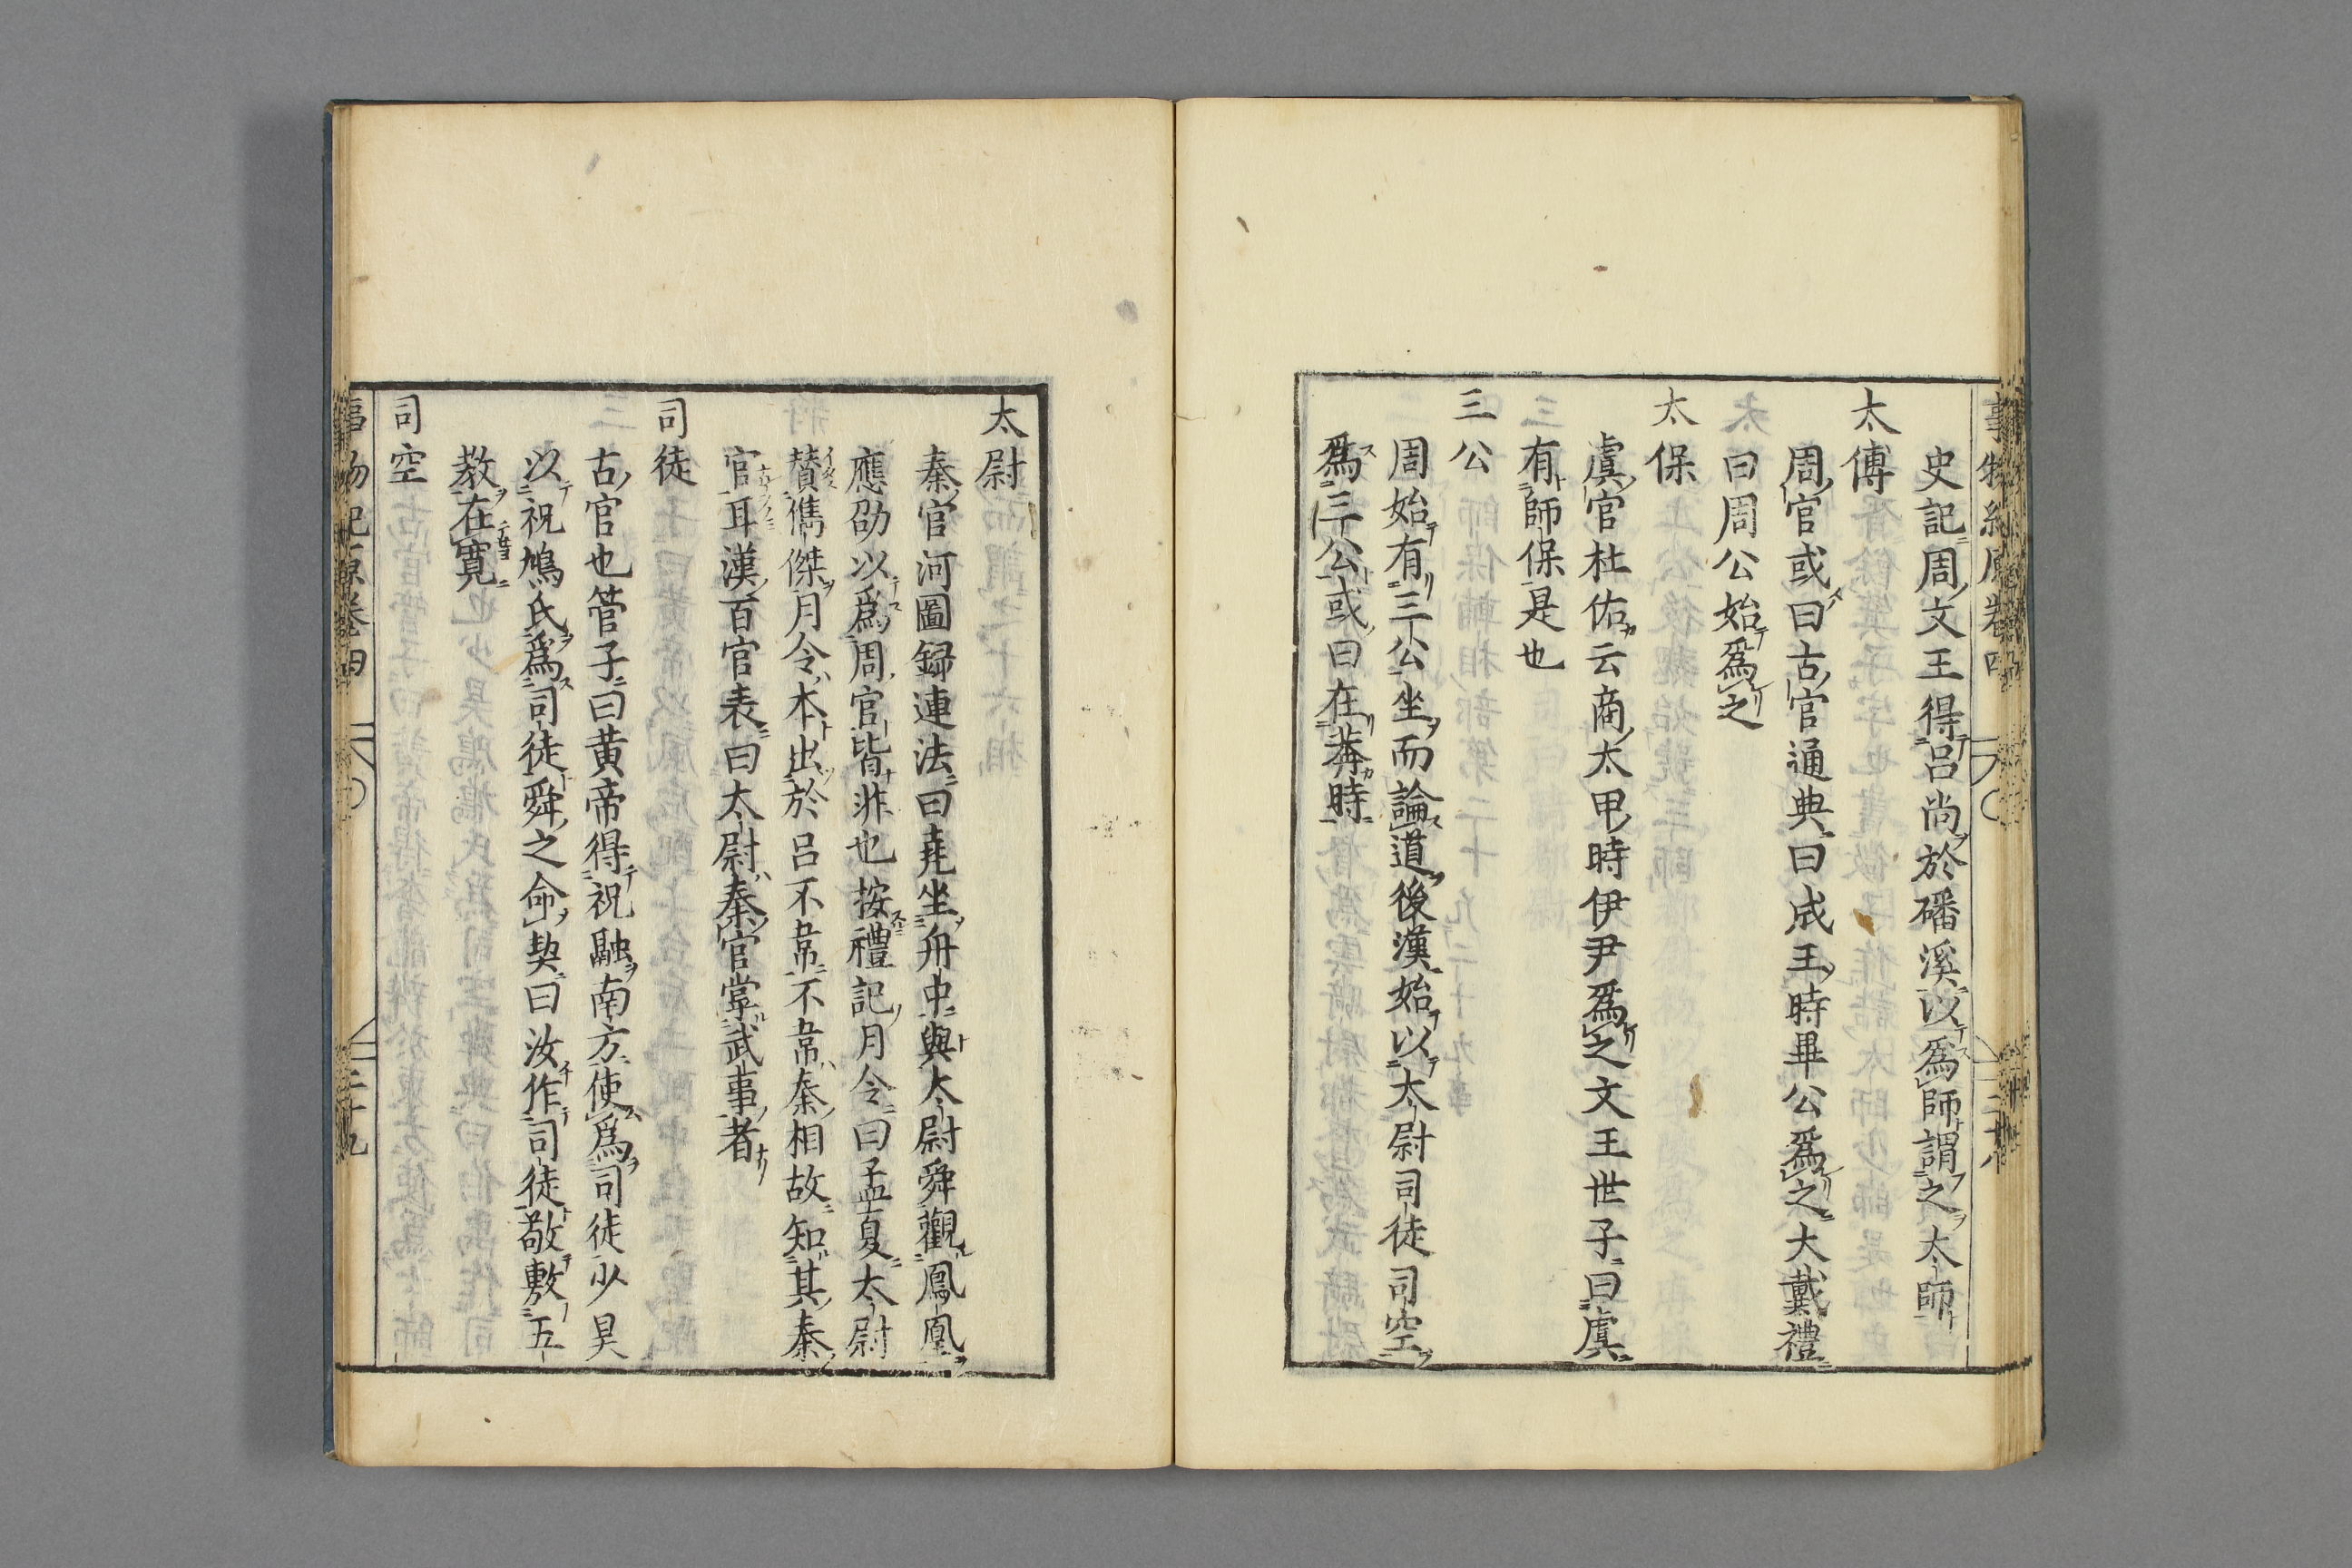 史記周文王得呂尚於磻溪以爲師謂之太師
太傅
周官或曰古官通典曰成王時畢公爲之大戴禮
曰周公始爲之
太保
虞官杜佑云商太甲時伊尹爲之文王世子曰虞
有師保是也
三公
周始有三公坐而論道後漢始以太尉司徒司空
爲三公或曰在莽時
太尉
秦官河圖録連法曰堯坐舟中與太尉舜觀鳳凰
應劭以爲周官皆非也按禮記月令曰孟夏太尉
賛儁傑月令本出於呂不韋不韋秦相故知其秦
官耳漢百官表曰太尉秦官掌武事者
司徒
古官也管子曰黄帝得祝融南方使爲司徒少昊
以祝鳩氏爲司徒舜之命契曰汝作司徒敬敷五
教在寛
司空
事物紀原卷四 二十九